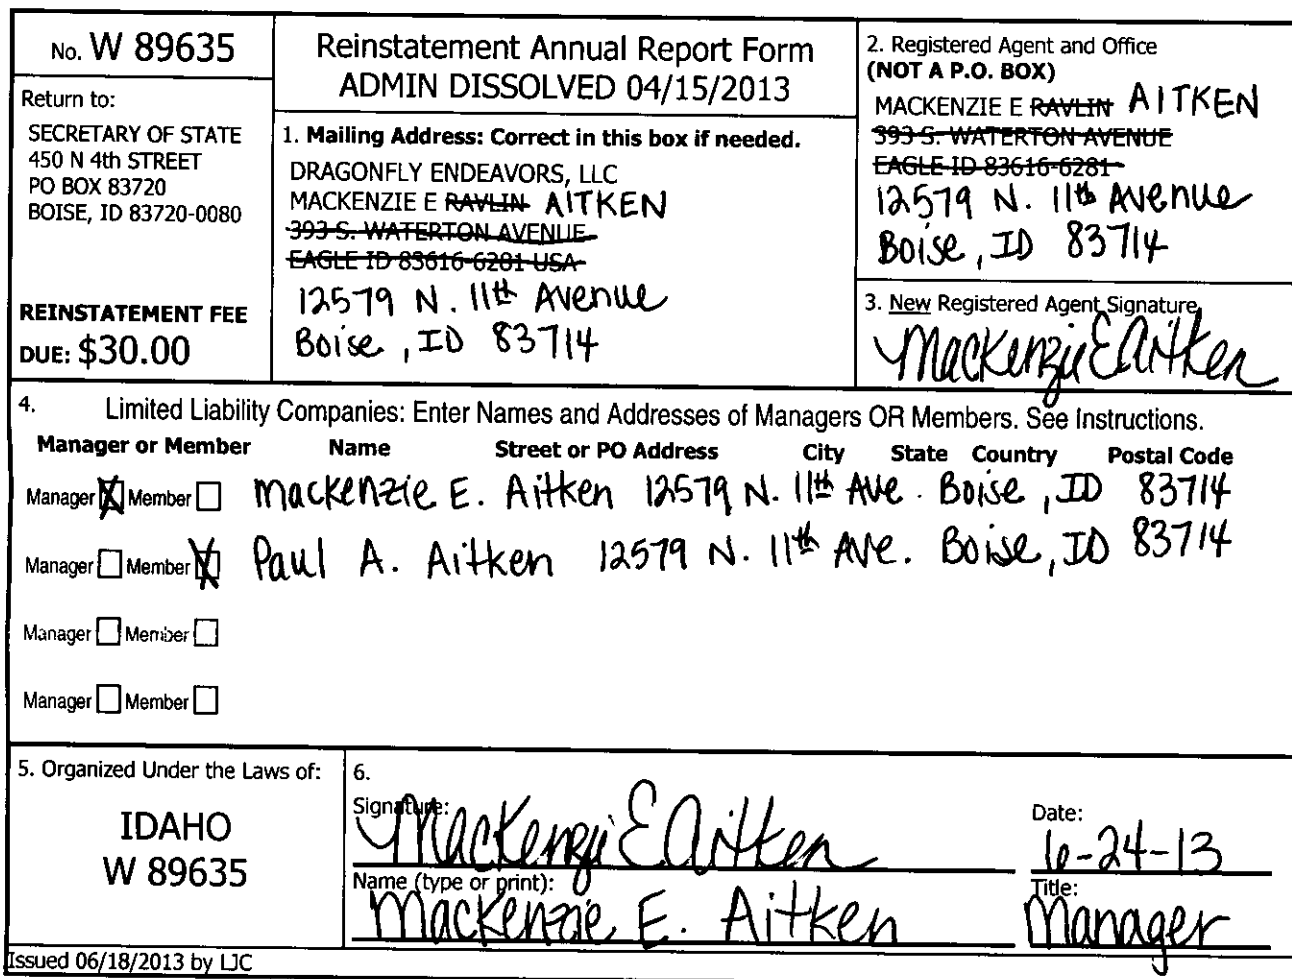 No. W 89635
Return to:
SECRETARY OF STATE
450 N 4th STREET
PO BOX 83720
BOISE, ID 83720-0080
REINSTATEMENT FEE
DUE: $30.00
Reinstatement Annual Report Form
ADMIN DISSOLVED 04/15/2013
1. Mailing Address: Correct in this box if needed.
DRAGONFLY ENDEAVORS, LLC
MACKENZIE E RAVLIN AITKEN
393 S. WATERTON AVENUE
EAGLE ID 83616-6281 USA
12579 N. 11th Avenue
Boise, ID 83714
2. Registered Agent and Office
(NOT A P.O. BOX)
MACKENZIE E RAVLIN AITKEN
393 S. WATERTON AVENUE
EAGLE ID 83616-6281
12579 N. 11th Avenue
Boise, ID 83714
3. New Registered Agent Signature
Mackenzie E Aitken
4. Limited Liability Companies: Enter Names and Addresses of Managers OR Members. See Instructions.
Manager or Member Name Street or PO Address City State Country Postal Code
Manager X Member Mackenzie E. Aitken 12579 N. 11th Ave. Boise, ID 83714
Manager Member X Paul A. Aitken 12579 N. 11th Ave. Boise, ID 83714
Manager Member
Manager Member
5. Organized Under the Laws of:
IDAHO
W 89635
6.
Signature: Mackenzie E Aitken
Date: 6-24-13
Name (type or print): Mackenzie E. Aitken
Title: Manager
Issued 06/18/2013 by LJC